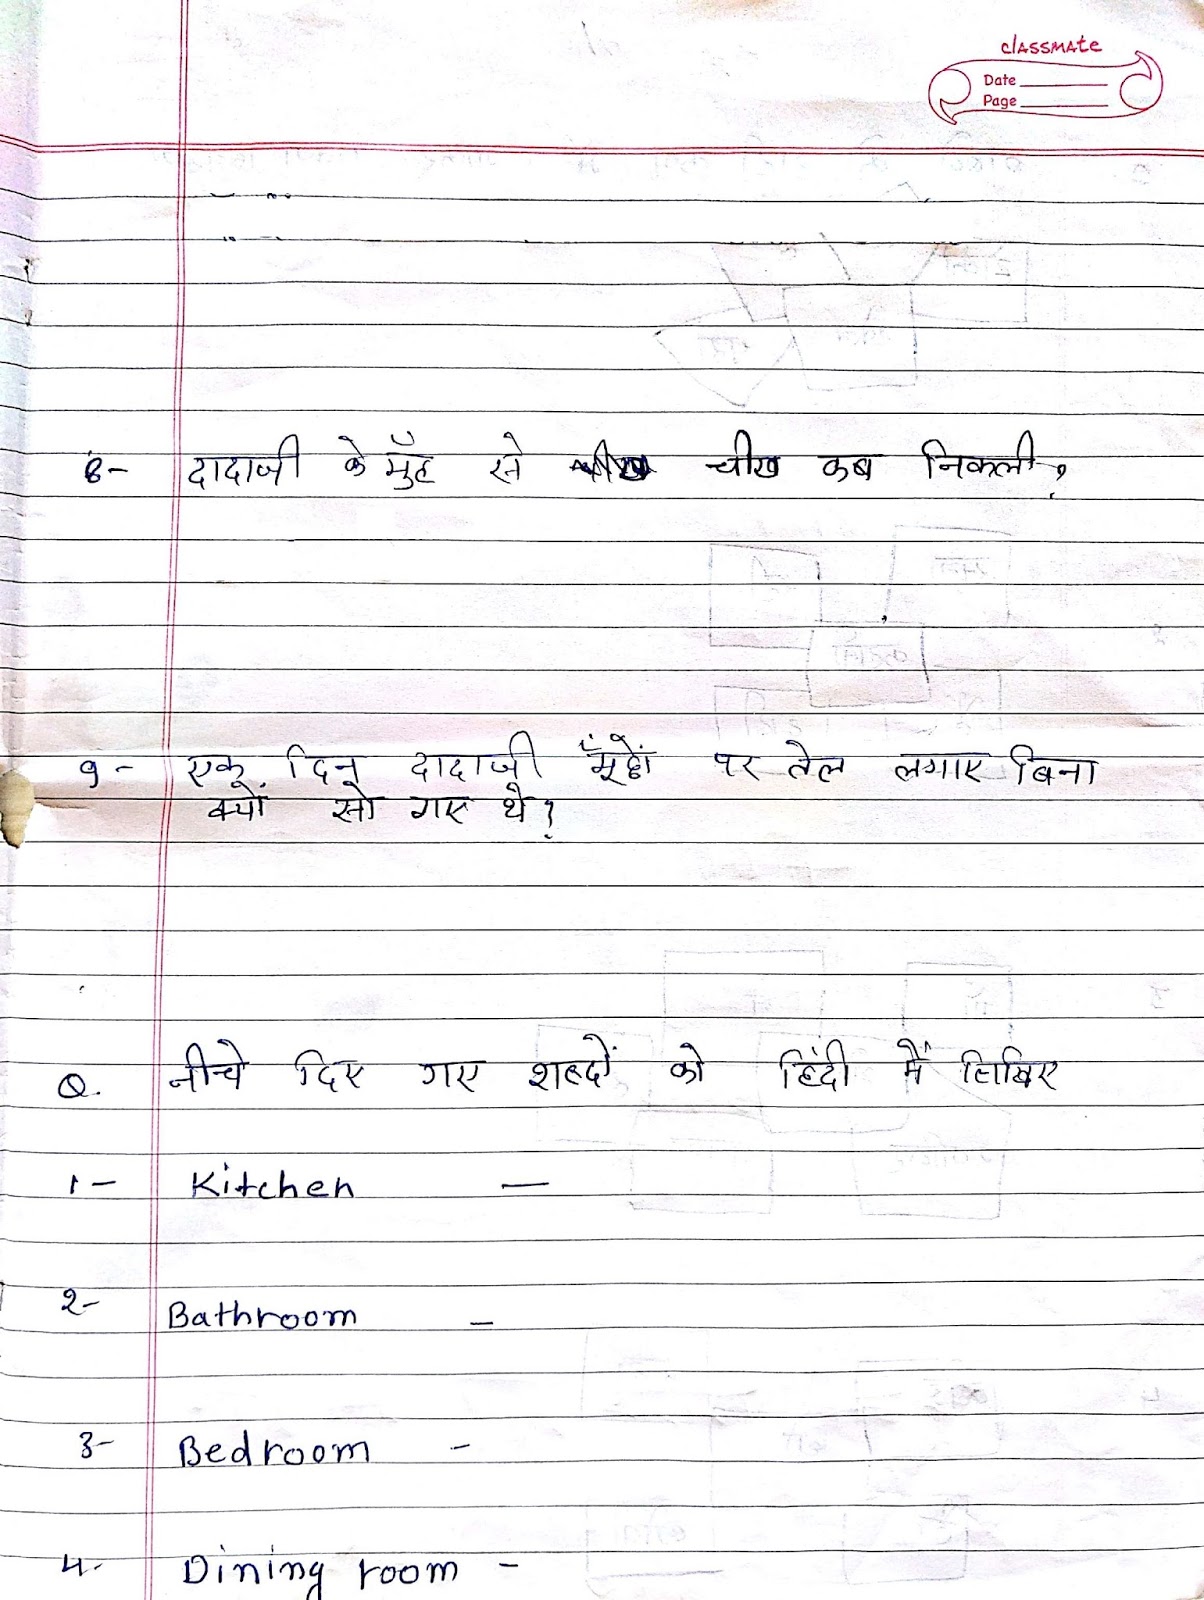 classmate
Date
Page
8- दादाजी के मुँह से चीख कब निकली?
9- एक दिन दादाजी मूँछों पर तेल लगाए बिना
क्यों सो गए थे?
Q. नीचे दिए गए शब्दों को हिंदी में लिखिए
1- Kitchen -
2- Bathroom -
3- Bedroom -
4- Dining room -